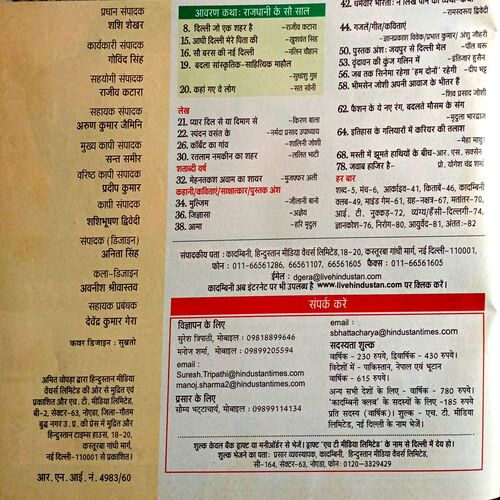 प्रधान संपादक
शशि शेखर
कार्यकारी संपादक
गोविंद सिंह
सहयोगी संपादक
राजीव कटारा
सहायक संपादक
अरुण कुमार जैमिनि
मुख्य कापी संपादक
सन्त समीर
वरिष्ठ कापी संपादक
प्रदीप कुमार
कापी संपादक
शशिभूषण द्विवेदी
संपादक (डिजाइन)
अनिता सिंह
कला-डिजाइन
अवनीश श्रीवास्तव
सहायक प्रबंधक
देवेंद्र कुमार गेरा
कवर डिजाइन : सुब्रतो
अमित चोपड़ा द्वारा हिन्दुस्तान मीडिया
वेंचर्स लिमिटेड की ओर से मुद्रित एवं
प्रकाशित और एच. टी. मीडिया लिमिटेड,
बी-2, सेक्टर-63, नोएडा, जिला-गौतम
बुद्ध नगर उ. प्र. की प्रेस में मुद्रित और
हिन्दुस्तान टाइम्स हाउस, 18-20,
कस्तूरबा गांधी मार्ग,
नई दिल्ली-110001 से प्रकाशित।
आर. एन. आई. नं. 4983/60
आवरण कथा: राजधानी के सौ साल
8. दिल्ली जो एक शहर है -राजीव कटारा
15. आधी दिल्ली मेरे पिता की -खुशवंत सिंह
16. सौ बरस की नई दिल्ली -नलिन चौहान
19. बदला सांस्कृतिक-साहित्यिक माहौल
-सुधांशु गुप्त
20. कहां गए वे लोग -सत सोनी
लेख
21. प्यार दिल से या दिमाग से -किरण बाला
22. स्पंदन वसंत के -नर्मदा प्रसाद उपाध्याय
26. कॉर्बेट का गांव -शालिनी जोशी
30. रतलाम नमकीन का शहर -ललित भाटी
शताब्दी वर्ष
32. मेहनतकश अवाम का शायर -मुजफ्फर अली
कहानी/कविताएं/साक्षात्कार/पुस्तक अंश
34. मुल्जिम -जीलानी बानो
36. जिज्ञासा -अज्ञेय
38. आमा -हरि मृदुल
-रामस्वरूप द्विवेदी
44. गजलें/गीत/कविताएं
-ज्ञानप्रकाश विवेक/प्रभात कुमार/ अंशु जौहरी
50. पुस्तक अंश: जयपुर से दिल्ली मेल
-पॉल थरू
53. वृंदावन की कुंज गलिन में -इंतिजार हुसैन
56. जब तक सिनेमा रहेगा 'हम दोनों' रहेगी -दीप भट्ट
58. भीमसेन जोशी अपनी आवाज के भीतर हैं
-शिव प्रसाद जोशी
62. फैशन के ये नए रंग, बदलते मौसम के संग
-मृदुला भारद्वाज
64. इतिहास के गलियारों में करियर की तलाश
-मेहा माथुर
68. मस्ती में झूमते हाथियों के बीच-आर. एस. सक्सेन
78. जवाब हाजिर है- प्रो. योगेश चंद्र शर्मा
हर बार
शब्द-5, मंच-6, आर्काइव-41, किताबें-46, कादम्बिनी
क्लब-49, माइंड गेम-61, ग्रह-नक्षत्र-67, मतांतर-70,
आई. टी. नुक्कड़-72, व्यंग्य/हँसी-दिल्लगी-74,
ज्ञानकोश-76, निरोग-80, आयुर्वेद-81, अंत:-82
संपादकीय पता : कादम्बिनी, हिन्दुस्तान मीडिया वेंचर्स लिमिटेड,18-20, कस्तूरबा गांधी मार्ग, नई दिल्ली-110001,
फोन : 011-66561286, 66561107, 66561605 फैक्स : 011-66561605
ईमेल : dgera@livehindustan.com
कादम्बिनी अब इंटरनेट पर भी उपलब्ध है www.livehindustan.com पर क्लिक करें।
संपर्क करें
विज्ञापन के लिए
सुरेश त्रिपाठी, मोबाइल : 09818899646
मनोज शर्मा, मोबाइल : 09899205594
email :
Suresh.Tripathi@hindustantimes.com
manoj.sharma2@hindustantimes.com
प्रसार के लिए
सौम्य भट्टाचार्य, मोबाइल : 09899114134
email :
sbhattacharya@hindustantimes.com
सदस्यता शुल्क
वार्षिक - 230 रुपये, द्विवार्षिक - 430 रुपये
विदेशों में - पाकिस्तान, नेपाल एवं भूटान
वार्षिक - 615 रुपये,
अन्य सभी देशों के लिए - वार्षिक - 780 रुपये।
'कादम्बिनी क्लब' के सदस्यों के लिए -185 रुपये
प्रति सदस्य (वार्षिक)। शुल्क - एच. टी. मीडिया
लिमिटेड, नई दिल्ली के नाम भेजें।
शुल्क केवल बैंक ड्राफ्ट या मनीऑर्डर से भेजें। ड्राफ्ट 'एच टी मीडिया लिमिटेड' के नाम से दिल्ली में देय हो।
शुल्क भेजने का पता: प्रसार व्यवस्थापक, कादम्बिनी, हिन्दुस्तान मीडिया वेंचर्स लिमिटेड,
सी-164, सेक्टर-63, नोएडा, फोन: 0120-3329429